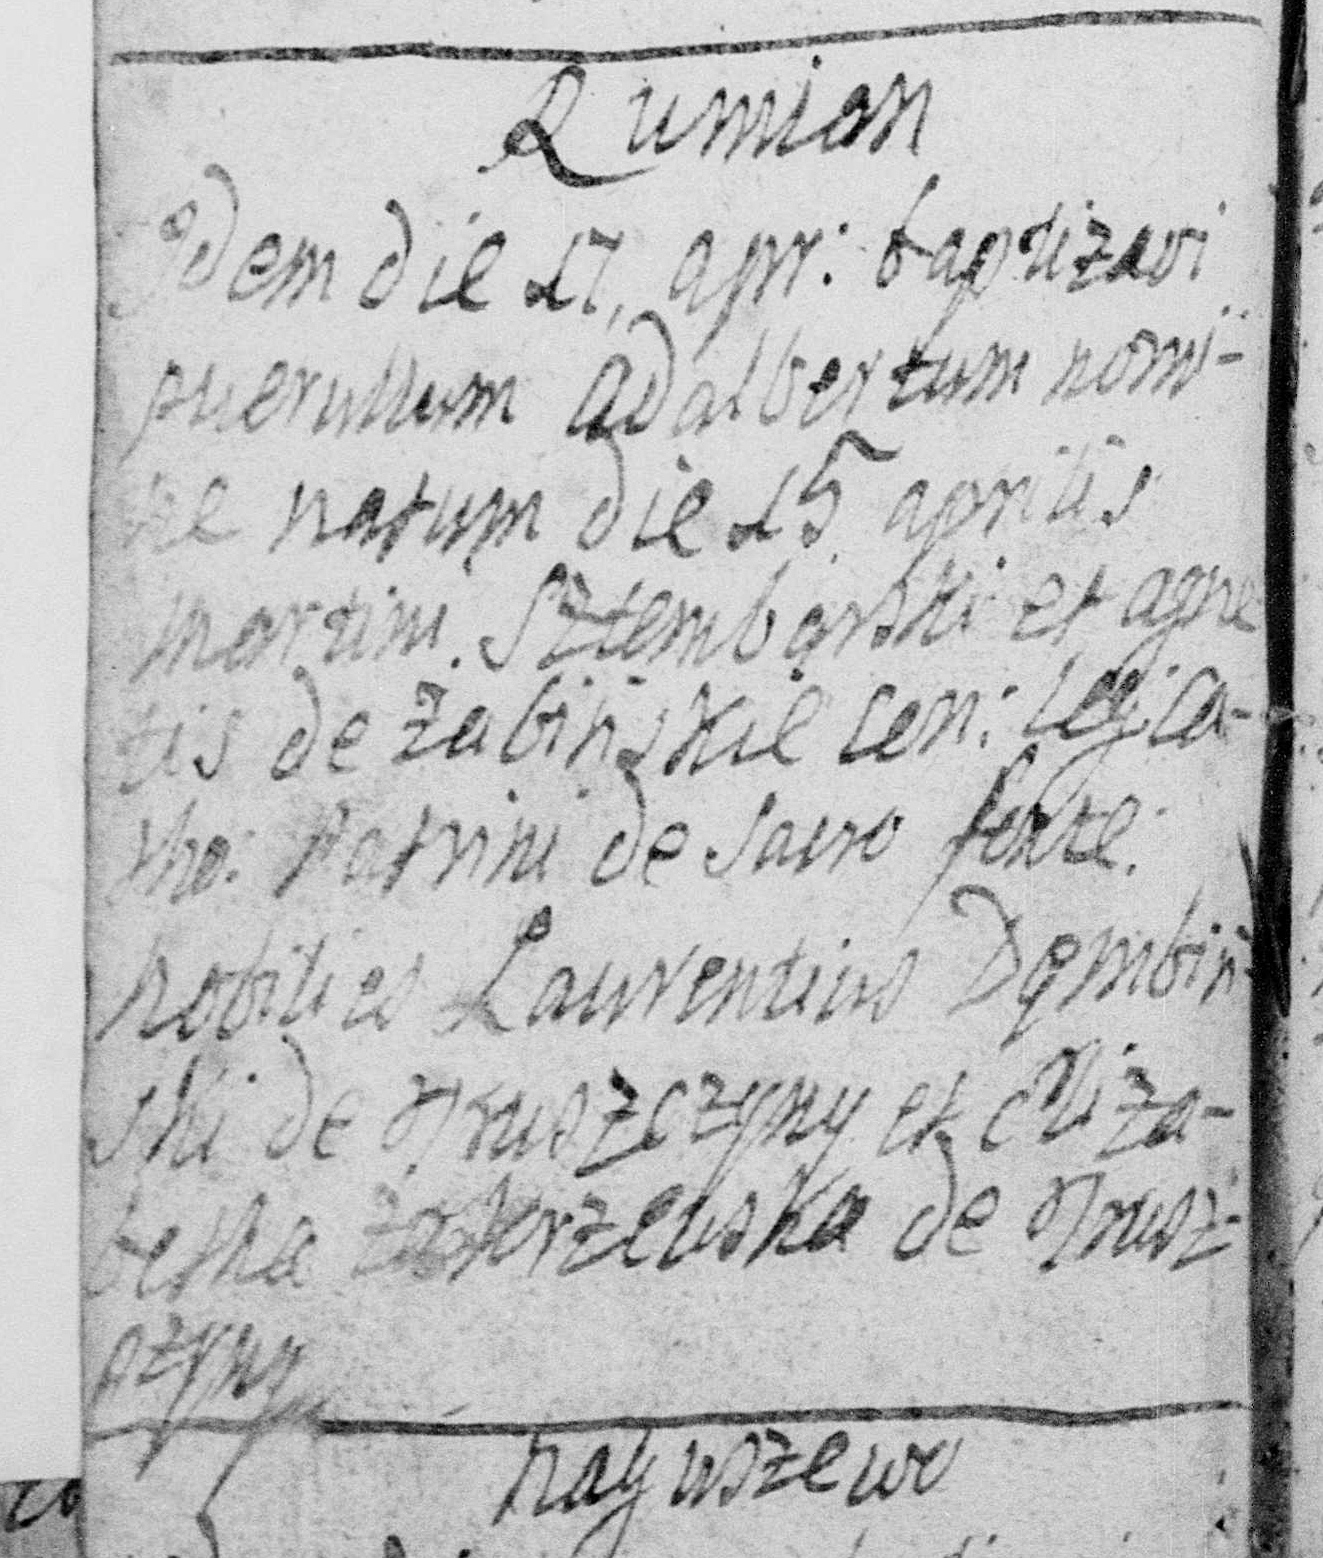 Rumian
Idem die 17, apr: baptizavi
puerullum Adalbertum nomi-
ne natum die 15 aprilis
Martini Sztembarski et agne
tis de żabińskie con: legica-
tho: Patrini de sacro fonte:
Nobilies Laurentius Dęmbiń
ski de Truszczyny et Eliza-
betha Zakrzewska de Trusz-
czyny
Naguszewo